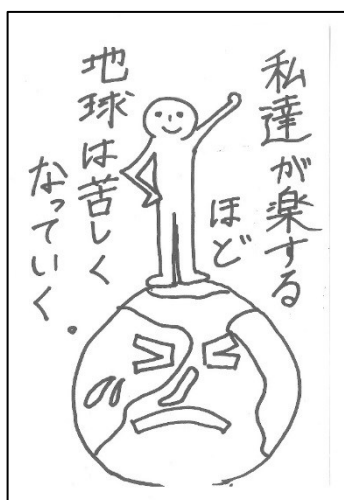 私達が楽する
ほど
地球は苦しく
なっていく。